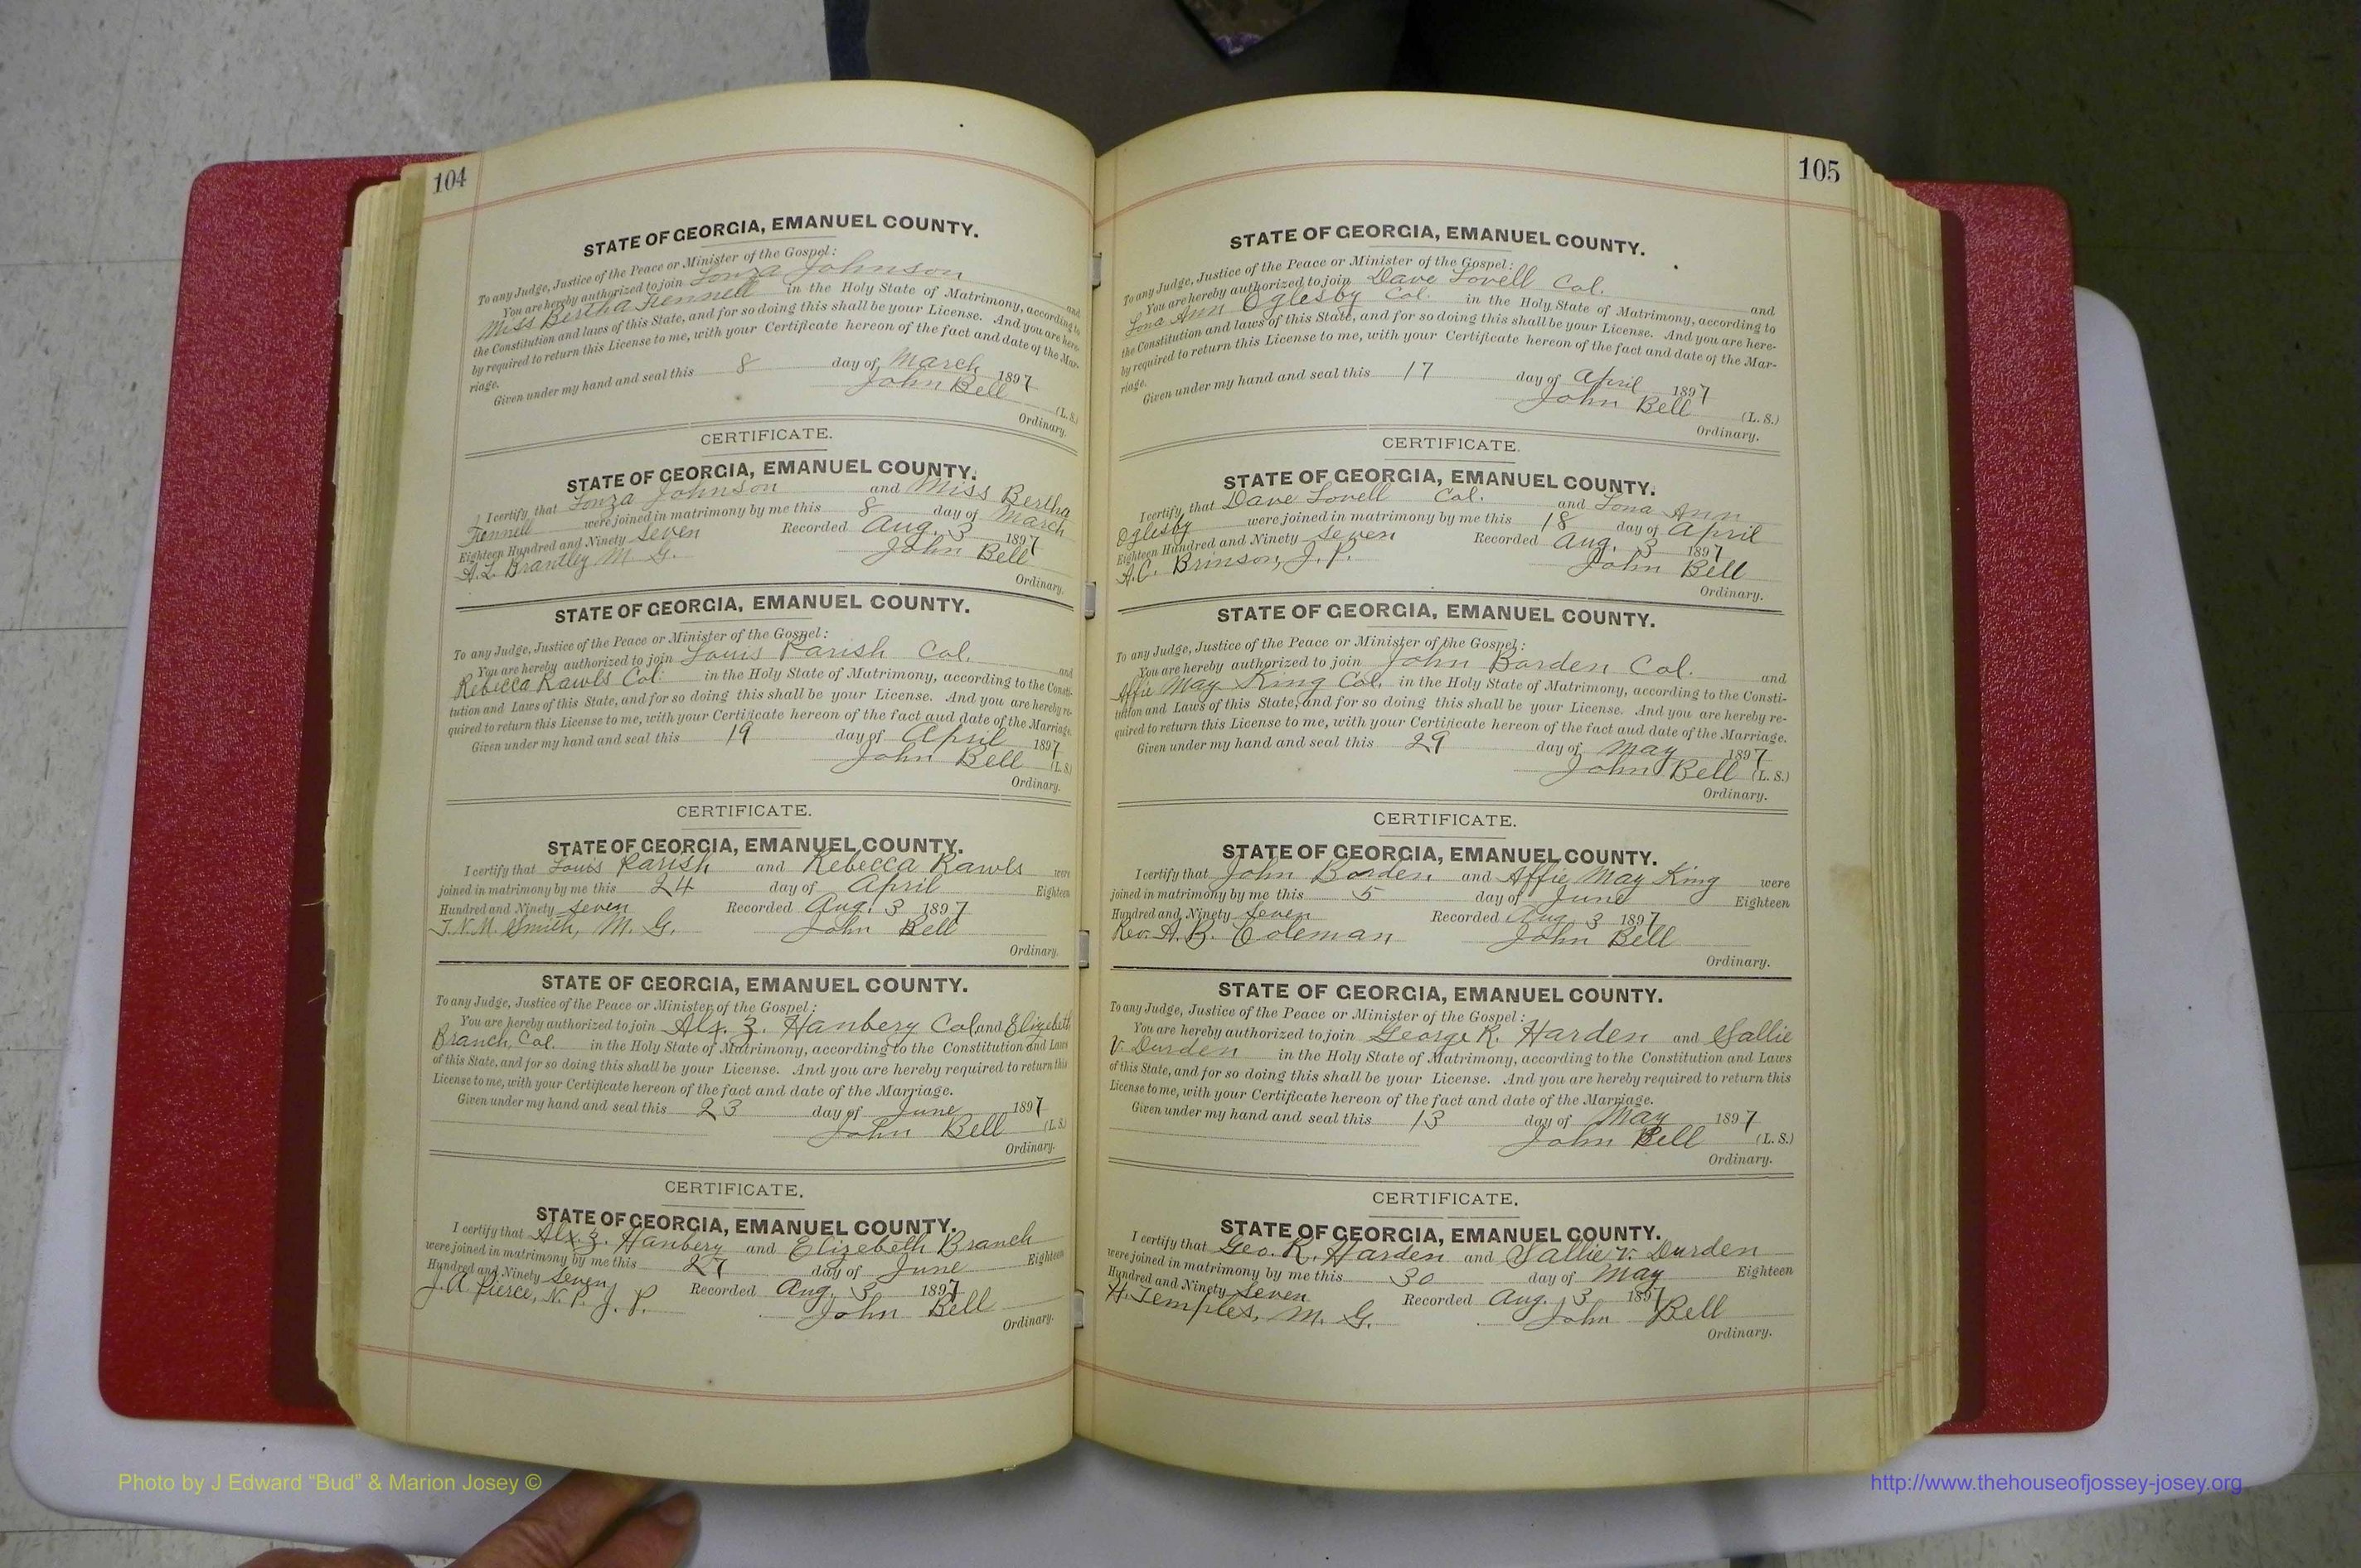 104
STATE OF GEORGIA, EMANUEL COUNTY.
To any Judge, Justice of the Peace or Minister of the Gospel:
You are hereby authorized to join Lonza Johnson and
Miss Bertha Fennell in the Holy State of Matrimony, according to
the Constitution and laws of this State, and for so doing this shall be your License. And you are here-
by required to return this License to me, with your Certificate hereon of the fact and date of the Mar-
riage.
Given under my hand and seal this 8 day of March 1897
John Bell (L. S.)
Ordinary.
CERTIFICATE.
STATE OF GEORGIA, EMANUEL COUNTY.
I certify that Lonza Johnson and Miss Bertha
Fennell were joined in matrimony by me this 8 day of March
Eighteen Hundred and Ninety seven Recorded Aug. 3 1897
A. L. Brantley M. G. John Bell
Ordinary.
STATE OF GEORGIA, EMANUEL COUNTY.
To any Judge, Justice of the Peace or Minister of the Gospel:
You are hereby authorized to join Louis Parish Col. and
Rebecca Rawls Col. in the Holy State of Matrimony, according to the Consti-
tution and Laws of this State, and for so doing this shall be your License. And you are hereby re-
quired to return this License to me, with your Certificate hereon of the fact aud date of the Marriage.
Given under my hand and seal this 19 day of April 1897
John Bell (L. S.)
Ordinary.
CERTIFICATE.
STATE OF GEORGIA, EMANUEL COUNTY.
I certify that Louis Parish and Rebecca Rawls were
joined in matrimony by me this 24 day of April Eighteen
Hundred and Ninety seven Recorded Aug. 3 1897
Smith, M. G. John Bell
Ordinary.
STATE OF GEORGIA, EMANUEL COUNTY.
To any Judge, Justice of the Peace or Minister of the Gospel:
You are hereby authorized to join Alx. Z. Hanbery Col. and Elizebeth
Branch, Col. in the Holy State of Matrimony, according to the Constitution and Laws
of this State, and for so doing this shall be your License. And you are hereby required to return this
License to me, with your Certificate hereon of the fact and date of the Marriage.
Given under my hand and seal this 23 day of June 1897
John Bell (L. S.)
Ordinary.
CERTIFICATE.
STATE OF GEORGIA, EMANUEL COUNTY.
I certify that Alx. Z. Hanbery and Elizebeth Branch
were joined in matrimony by me this 27 day of June Eighteen
Hundred and Ninety seven Recorded Aug. 3 1897
J. A. Pierce, N. P. J. P. John Bell
Ordinary.
105
STATE OF GEORGIA, EMANUEL COUNTY.
To any Judge, Justice of the Peace or Minister of the Gospel:
You are hereby authorized to join Dave Lovell Col. and
Lona Ann Oglesby Col. in the Holy State of Matrimony, according to
the Constitution and laws of this State, and for so doing this shall be your License. And you are here-
by required to return this License to me, with your Certificate hereon of the fact and date of the Mar-
riage.
Given under my hand and seal this 17 day of April 1897
John Bell (L. S.)
Ordinary.
CERTIFICATE.
STATE OF GEORGIA, EMANUEL COUNTY.
I certify that Dave Lovell Col. and Lona Ann
Oglesby were joined in matrimony by me this 18 day of April
Eighteen Hundred and Ninety seven Recorded Aug. 3 1897
A. C. Brinson, J. P. John Bell
Ordinary.
STATE OF GEORGIA, EMANUEL COUNTY.
To any Judge, Justice of the Peace or Minister of the Gospel:
You are hereby authorized to join John Borden Col. and
Affie May King Col. in the Holy State of Matrimony, according to the Consti-
tution and Laws of this State, and for so doing this shall be your License. And you are hereby re-
quired to return this License to me, with your Certificate hereon of the fact aud date of the Marriage.
Given under my hand and seal this 29 day of May 1897
John Bell (L. S.)
Ordinary.
CERTIFICATE.
STATE OF GEORGIA, EMANUEL COUNTY.
I certify that John Borden and Affie May King were
joined in matrimony by me this 5 day of June Eighteen
Hundred and Ninety seven Recorded Aug. 3 1897
Rev. A. B. Coleman John Bell
Ordinary.
STATE OF GEORGIA, EMANUEL COUNTY.
To any Judge, Justice of the Peace or Minister of the Gospel:
You are hereby authorized to join George R. Harden and Sallie
V. Durden in the Holy State of Matrimony, according to the Constitution and Laws
of this State, and for so doing this shall be your License. And you are hereby required to return this
License to me, with your Certificate hereon of the fact and date of the Marriage.
Given under my hand and seal this 13 day of May 1897
John Bell (L. S.)
Ordinary.
CERTIFICATE.
STATE OF GEORGIA, EMANUEL COUNTY.
I certify that Geo. R. Harden and Sallie V. Durden
were joined in matrimony by me this 30 day of May Eighteen
Hundred and Ninety seven Recorded Aug. 3 1897
H. Temples, M. G. John Bell
Ordinary.
Photo by J Edward “Bud” & Marion Josey ©
http://www.thehouseofjossey-josey.org